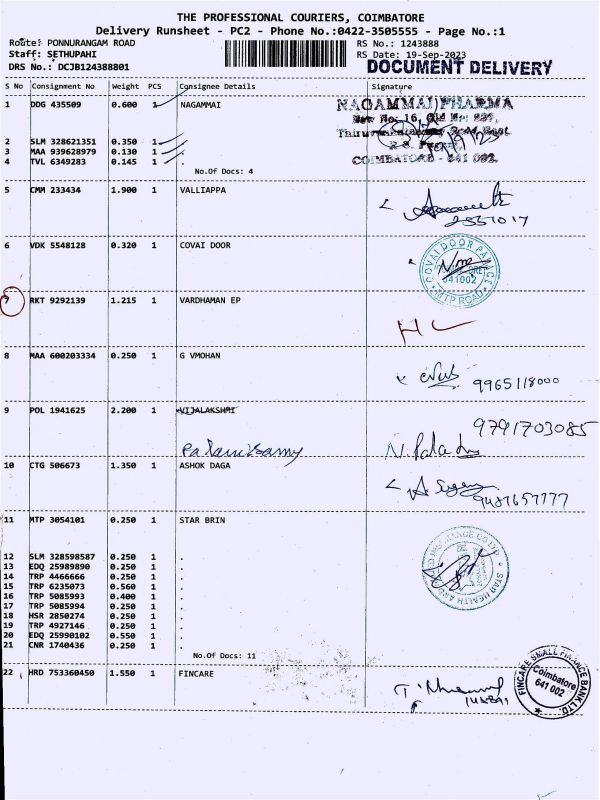 THE PROFESSIONAL COURIERS, COIMBATORE
Delivery Runsheet - PC2 - Phone No.:0422-3505555 - Page No.:1
Route: PONNURANGAM ROAD RS No.: 1243888
Staff: SETHUPAHI RS Date: 19-Sep-2023
DRS No.: DCJB124388801 DOCUMENT DELIVERY
S No Consignment No Weight PCS Consignee Details Signature
1 DDG 435509 0.600 1 NAGAMMAI NAGAMMAI PHARMA
New No: 16, Old No: 227,
2 SLM 328621351 0.350 1 .
3 MAA 939628979 0.130 1 . R.S.
4 TVL 6349283 0.145 1 . COIMBATORE - 641 002.
No.Of Docs: 4
5 CMM 233434 1.900 1 VALLIAPPA
2557017
6 VDK 5548128 0.320 1 COVAI DOOR COVAI DOOR PALACE
641002
MTP ROAD
7 RKT 9292139 1.215 1 VARDHAMAN EP
HC
8 MAA 600203334 0.250 1 G VMOHAN
9965118000
9 POL 1941625 2.200 1 VIJALAKSHMI 9791703085
Palanisamy N. Pala
10 CTG 506673 1.350 1 ASHOK DAGA
9487657777
11 MTP 3054101 0.250 1 STAR BRIN
STAR HEALTH AND
12 SLM 328598587 0.250 1 .
13 EDQ 25989890 0.250 1 .
14 TRP 4466666 0.250 1 .
15 TRP 6235073 0.560 1 .
16 TRP 5085993 0.400 1 .
17 TRP 5085994 0.250 1 .
18 HSR 2850274 0.250 1 .
19 TRP 4927146 0.250 1 .
20 EDQ 25990102 0.550 1 .
21 CNR 1740436 0.250 1 .
No.Of Docs: 11
22 HRD 753360450 1.550 1 FINCARE FINCARE SMALL FINANCE BANK LTD.
Coimbatore
641 002